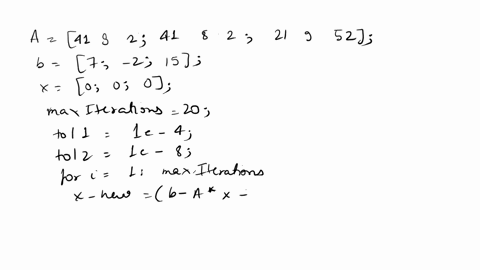 A = [41 9 2; 41 8 2; 21 9 52];
b = [7; -2; 15];
x = [0; 0; 0];
max Iterations = 20;
tol 1 = 1e-4;
tol 2 = 1e-8;
for i = 1: max Iterations
x-new = (b - A* x -